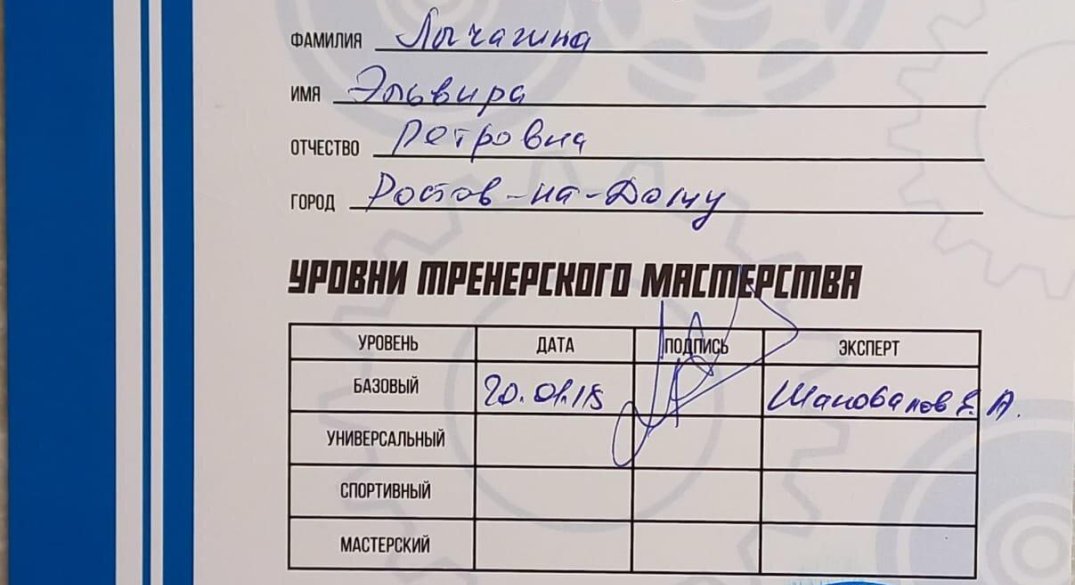 ФАМИЛИЯ Лычагина
ИМЯ Эльвира
ОТЧЕСТВО Петровна
ГОРОД Ростов-на-Дону
УРОВНИ ТРЕНЕРСКОГО МАСТЕРСТВА
УРОВЕНЬ ДАТА ПОДПИСЬ ЭКСПЕРТ
БАЗОВЫЙ 20.01.18 Шаповалов Е. А.
УНИВЕРСАЛЬНЫЙ
СПОРТИВНЫЙ
МАСТЕРСКИЙ